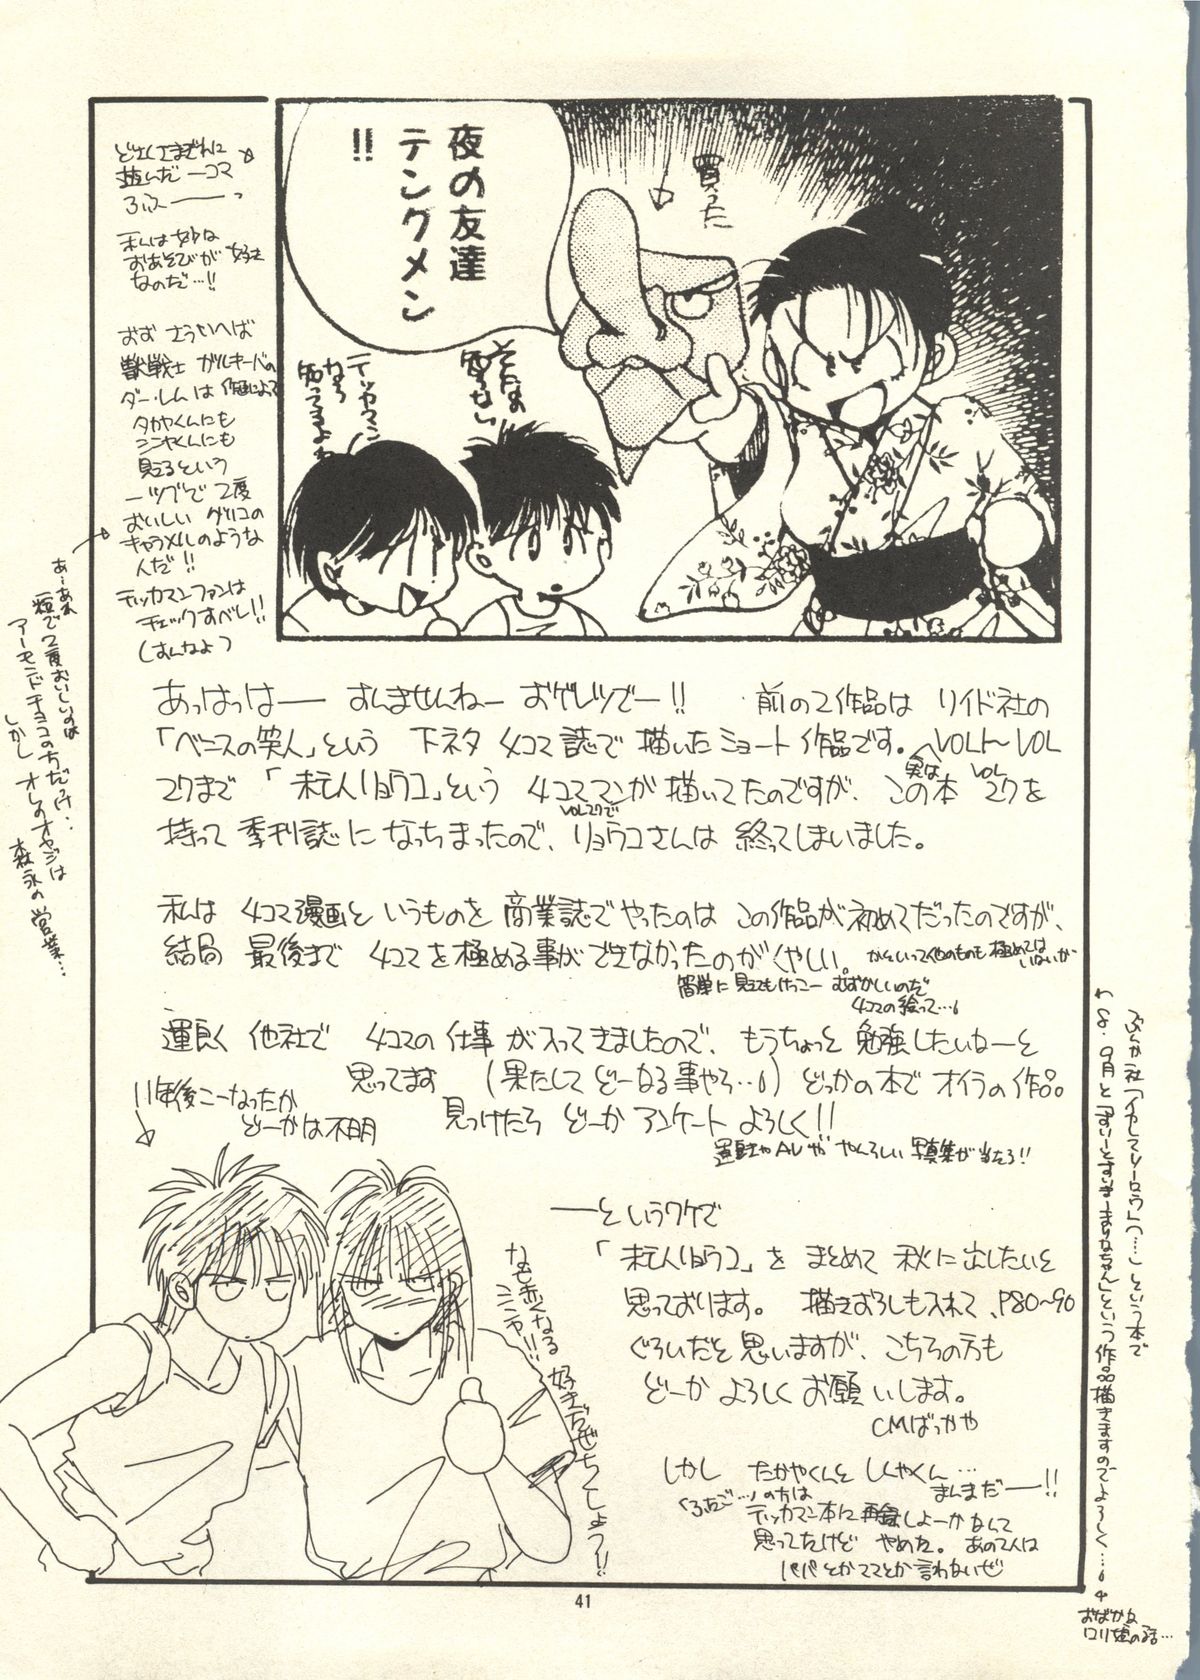 夜の友達
テングメン
!!
買った
そんなの
知らない
テッカマン
なら
知ってるよね
どさくさまぎれに
並んだ一コマ
ふふ——っ
私は妙な
おあそびが好き
なのだ…!!
おお そういへば
獣戦士 ガルキーバの
ダ・レムは 作画によって
タカヤくんにも
シンヤくんにも
見えるという
一ツブで 2度
おいしい グリコの
キャラメルのような
んだ!!
テッカマンファンは
チェックすべし!!
あーあれ
一粒で2度おいしいのは
アーモンドチョコの方だっけ‥
しかし オレのオヤジは
森永の営業…
あっはっはー すんませんねー おゲレツでー!! 前の2作品は リイド社の
「ベニスの笑人」という 下ネタ 4コマ誌で 描いたショート作品です。VOL1〜VOL
27まで「未亡人リョウコ」という 4コママンガ描いてたのですが、実は この本 VOL27を
持って 季刊誌に なっちまったので、VOL27で リョウコさんは 終ってしまいました。
私は 4コマ漫画と いうものを 商業誌でやったのは この作品が初めてだったのですが、
結局 最後まで 4コマを極める事ができなかったのが くやしい。かといって他のものも極めては
いないが
簡単に見えてもけっこー むずかしいのだ
4コマの絵って…。
運良く 他社で 4コマの仕事が入ってきましたので、もうちょっと 勉強したいなーと
思ってます (果たして どーなる事やら…。) どっかの本で オイラの作品
見つけたら どーか アンケート よろしく!!
写真集が当たる!!
11年後こーなったか
どーかは不明
——というワケで
「未亡人リョウコ」を まとめて 秋に出したいと
思っております。 描きおろしも入れて、P80〜90
ぐらいだと思いますが、こちらの方も
どーか よろしくお願いします。
CMばっかや
しかし たかやくんと しんやくん…
まんまだ——!!
「ふたご…」の方は
テッカマン本に再録しよーかなんて
思ってたけど やめた。 あの2人は
パパとかママとか言わないぜ
なぜ赤くなる
シンヤ!!
好きだぜちくしょう!!
という本で
という作品描きますのでよろしく…。
おばかな
ロリ娘の話…
41